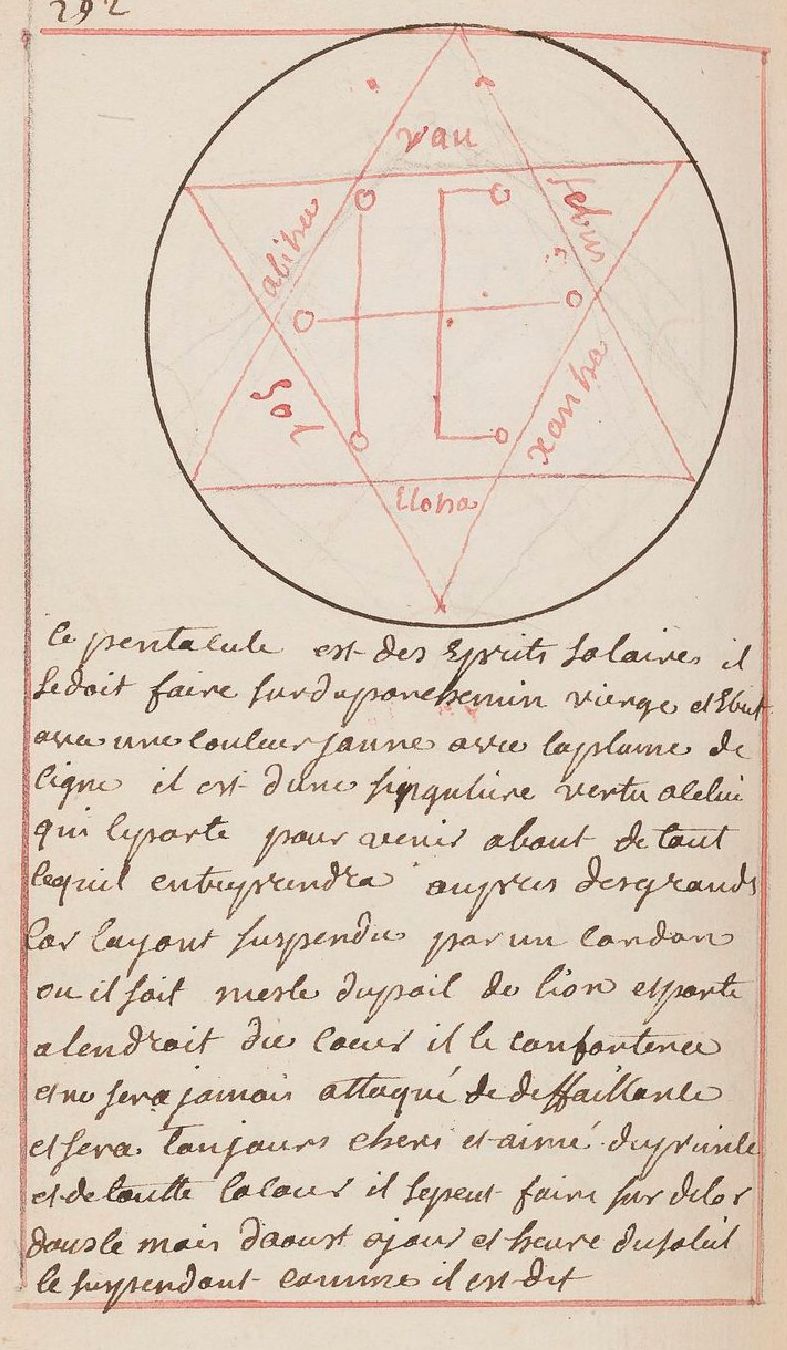 292
vau
abiha
Sol
Eloha
ce pentacule est des Esprits Solaires il
se doit faire sur du parchemin vierge et Ebrit
avec une couleur jaune avec la plume de
cigne il est dune singuliere vertu a celui
qui le porte pour venir about de tout
ce quil entreprendra aupres des grands
car layant suspendu par un cordon
ou il soit mesle du poil de lion et porte
a lendroit du coeur il le confortera
et ne sera jamais attaqué de deffaillance
et sera toujours cheri et aimé du prince
et de toutte la cour il se peut faire sur de lor
dans le mois daoust a jour et heure du soleil
le suspendant comme il est dit